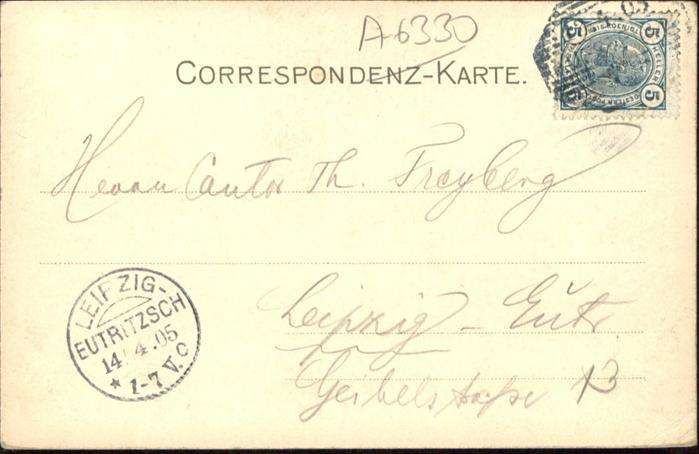 A6330
CORRESPONDENZ-KARTE.
5 HELLER 5
Herrn Cantor Th. Freyberg
Leipzig - Eutr.
Geibelstraße 13
LEIPZIG-
EUTRITZSCH
14 4.05
* 1-7 V. C